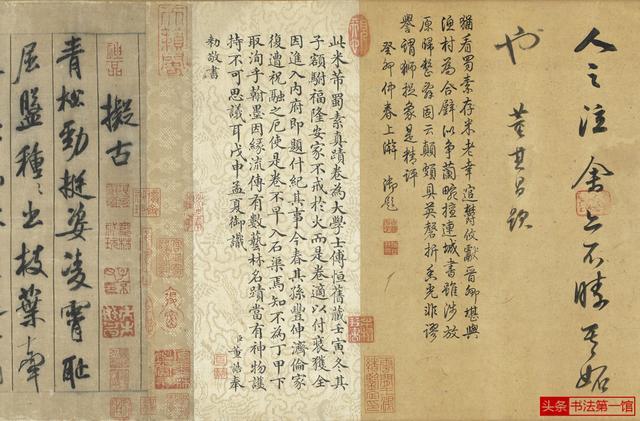 人之注余亦不其妬
也 董其昌題
獨看蜀素存米老幸逭欝攸晉卿堪與
漁村為合璧似爭蘭畹擅連城書雖涉放
原歸整因云顛頗具英磬折米光非謬
譽謂獅投象是精評
癸卯仲春上澣 御題
此米芾蜀素真蹟卷為大學士傅恒舊藏壬寅冬其
子額駙福隆安家不戒於火而是卷適以付裝獲全
因進入內府即題什紀其事今春其孫豐伸濟倫家
復遭祝融之厄使是卷不早入石渠焉知不為丁甲下
取洵乎翰墨因緣流傳有數藝林名蹟當有神物護
持不可思議耳戊申孟夏御識 臣董誥奉
勅敬書
擬古
青松勁挺姿凌霄恥
屈盤種〻出枝葉牽
头条 书法第一馆